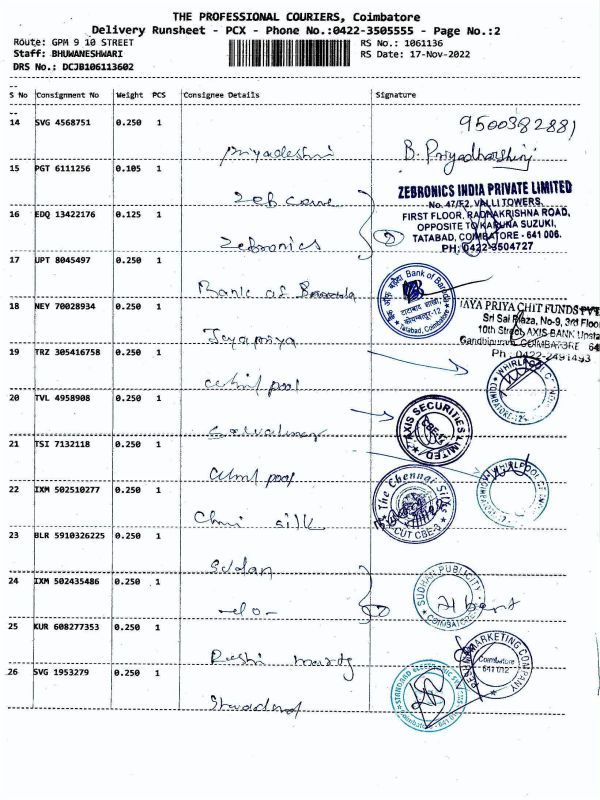 THE PROFESSIONAL COURIERS, Coimbatore
Delivery Runsheet - PCX - Phone No.:0422-3505555 - Page No.:2
Route: GPM 9 10 STREET
RS No.: 1061136
Staff: BHUWANESHWARI
RS Date: 17-Nov-2022
DRS No.: DCJB106113602
S No Consignment No Weight PCS Consignee Details Signature
14 SVG 4568751 0.250 1
9500382881
B. Priyadharshini
15 PGT 6111256 0.105 1
ZEBRONICS INDIA PRIVATE LIMITED
No. 47/F2, VALLI TOWERS,
FIRST FLOOR, RADHAKRISHNA ROAD,
OPPOSITE TO KARUNA SUZUKI,
TATABAD, COIMBATORE - 641 006.
PH: 0422-3504727
16 EDQ 13422176 0.125 1
Zebronics
2
17 UPT 8045497 0.250 1
Bank of Baroda
Bank of Baroda
Tatabad, Coimbatore
18 NEY 70028934 0.250 1
Jeyapriya
JAYA PRIYA CHIT FUNDS PVT
Sri Sai Plaza, No-9, 3rd Floor
10th Street, AXIS BANK Upsta
Gandhipuram, COIMBATORE 64
Ph : 0422-2491493
19 TRZ 305416758 0.250 1
WHIRLPOOL OF INDIA
COIMBATORE-12
20 TVL 4958908 0.250 1
AXIS SECURITIES LIMITED
CBE-12
21 TSI 7132118 0.250 1
WHIRLPOOL OF INDIA
22 IXM 502510277 0.250 1
silk
The Chennai Silks
CUT CBE-3
23 BLR 5910326225 0.250 1
24 IXM 502435486 0.250 1
-do-
SUDHAR PUBLICITY
COIMBATORE
25 KUR 608277353 0.250 1
MARKETING COMPANY
Coimbatore
641 012
26 SVG 1953279 0.250 1
STANDARD ELECTRONIC
Coimbatore